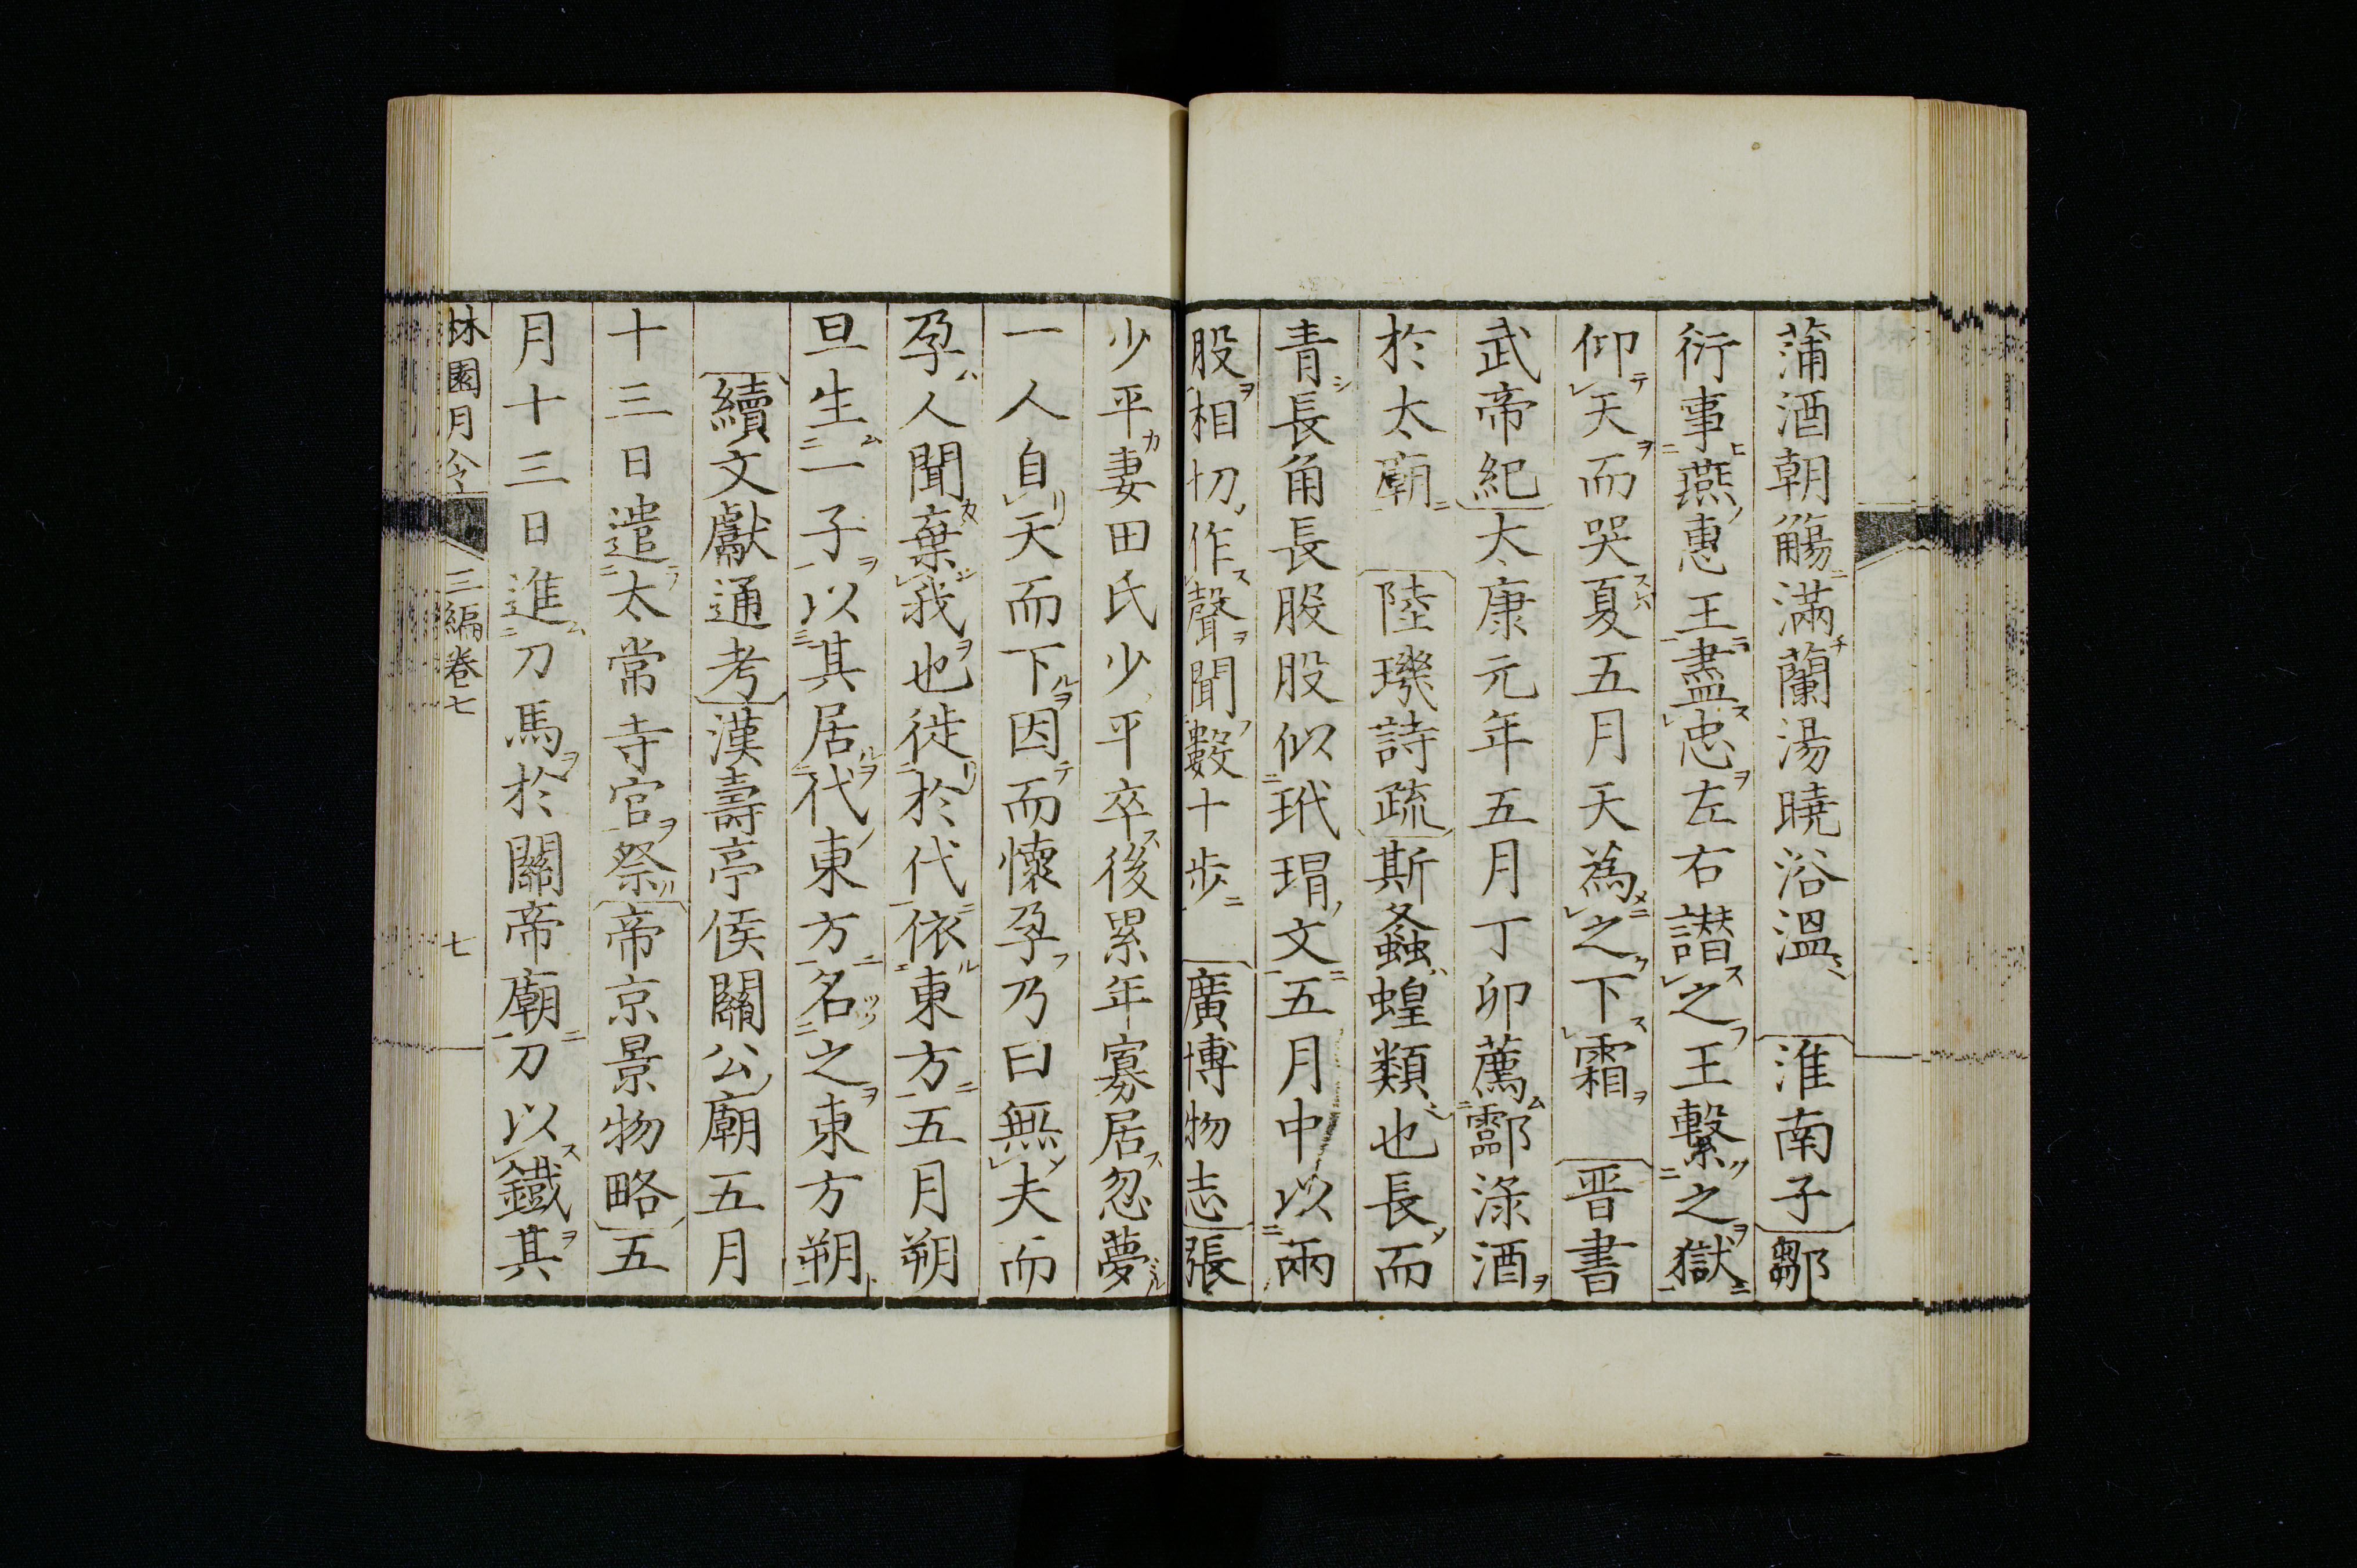 蒲酒朝觴滿蘭湯曉浴溫淮南子鄒
衍事燕惠王盡忠左右譖之王繫之獄
仰天而哭夏五月天為之下霜晋書
武帝紀太康元年五月丁卯薦酃淥酒
於太廟陸璣詩疏斯螽蝗類也長而
青長角長股股似玳瑁文五月中以兩
股相切作聲聞數十步廣博物志張
少平妻田氏少平卒後累年寡居忽夢
一人自天而下因而懷孕乃曰無夫而
孕人聞棄我也徙於代依東方五月朔
旦生一子以其居代東方名之東方朔
續文獻通考漢壽亭侯關公廟五月
十三日遣太常寺官祭帝京景物略五
月十三日進刀馬於關帝廟刀以鐵其
林園月令 三編卷七 七